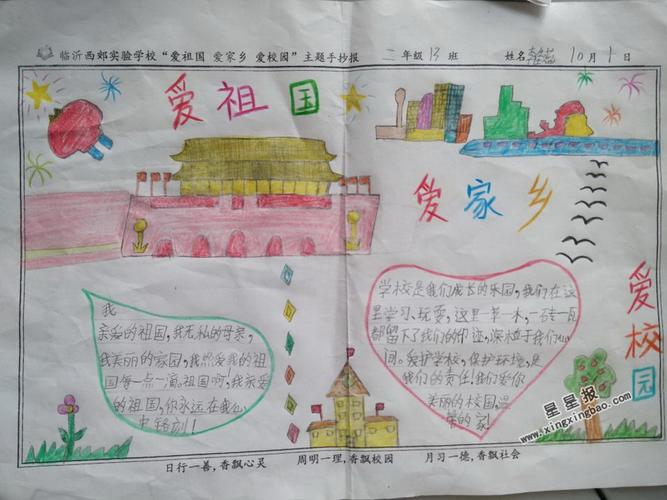 临沂西郊实验学校“爱祖国 爱家乡 爱校园”主题手抄报 二年级13班 姓名 10月1日
爱祖国
爱家乡
爱校园
我
亲爱的祖国,我无私的母亲,
我美丽的家园,我热爱我的祖
国每一点一滴,祖国啊!我亲爱
的祖国,你永远在我心
中铭刻!
学校是我们成长的乐园,我们在这
里学习、玩耍,这里一草一木,一砖一瓦
都留下了我们的印迹,深植于我们心
间。爱护学校,保护环境,是
我们的责任!我们爱你
美丽的校园,温
的家
日行一善,香飘心灵 周明一理,香飘校园 月习一德,香飘社会
星星报
www.xingxingbao.com